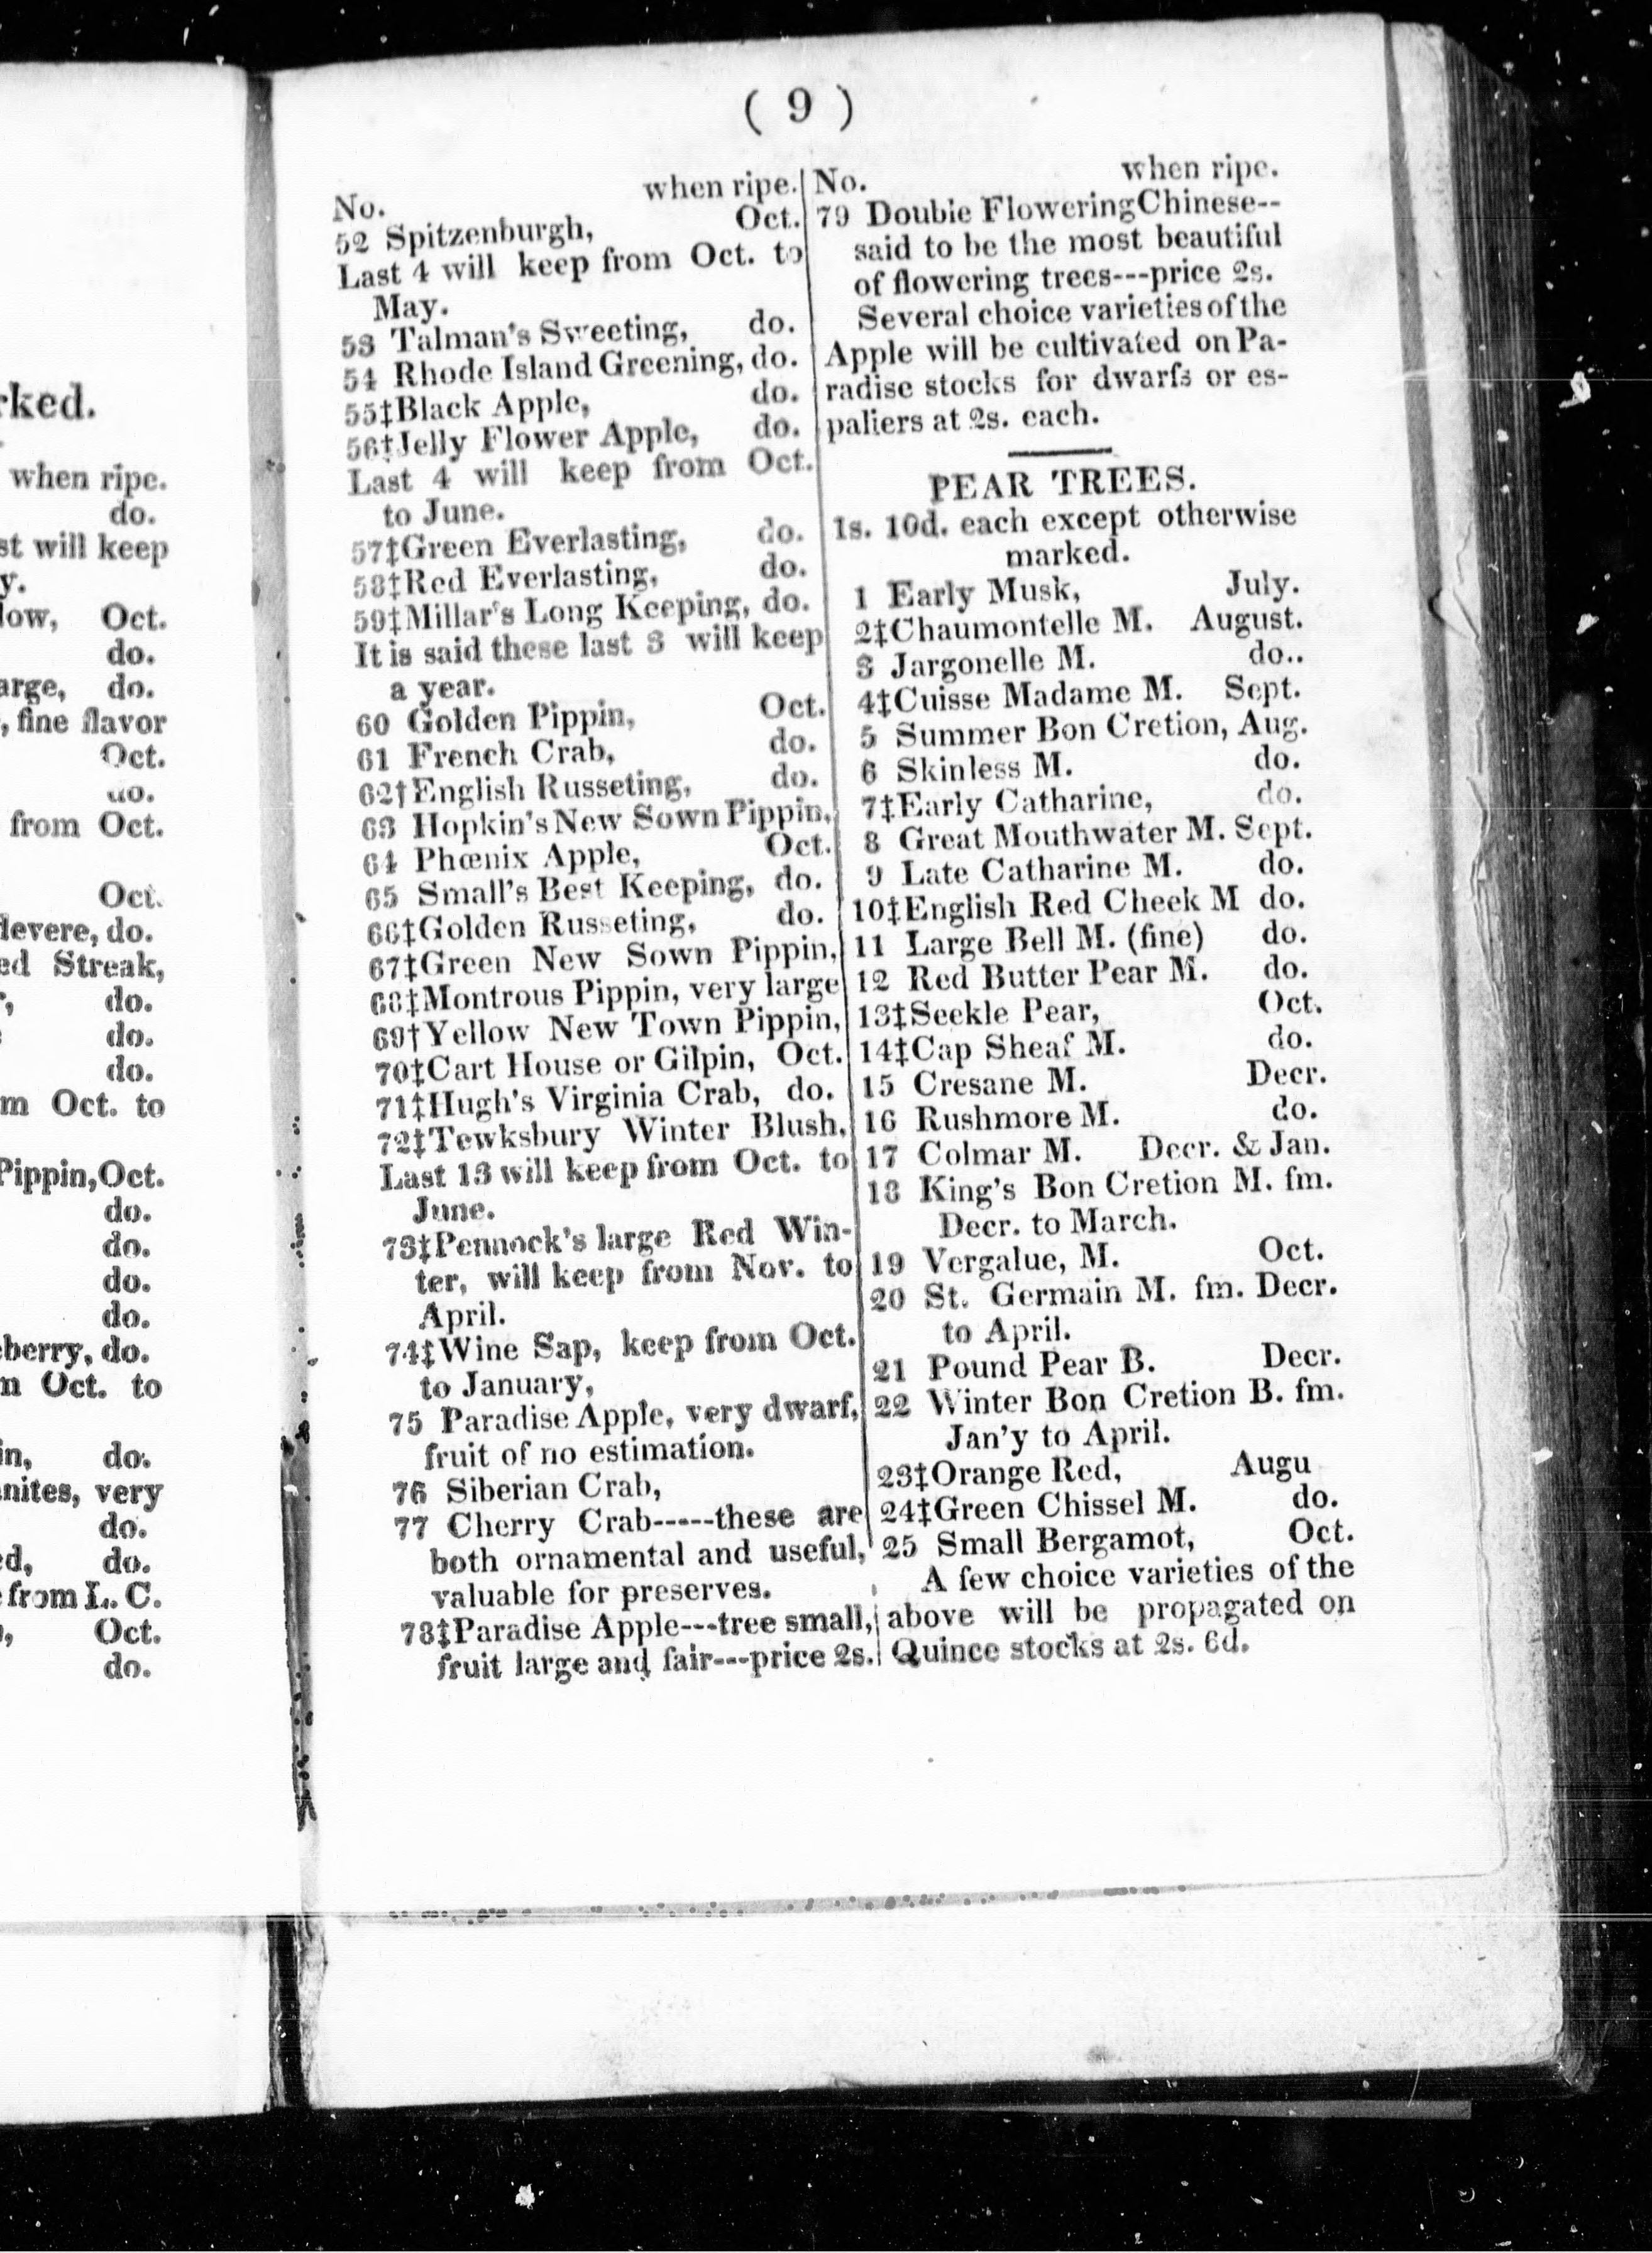 rked.
when ripe.
do.
st will keep
y.
low, Oct.
do.
arge, do.
, fine flavor
Oct.
do.
from Oct.
Oct.
levere, do.
ed Streak,
, do.
do.
do.
m Oct. to
Pippin, Oct.
do.
do.
do.
do.
berry, do.
n Oct. to
in, do.
nites, very
do.
d, do.
from L. C.
, Oct.
do.
( 9 )
No. when ripe.
52 Spitzenburgh, Oct.
Last 4 will keep from Oct. to
May.
53 Talman's Sweeting, do.
54 Rhode Island Greening, do.
55‡Black Apple, do.
56‡Jelly Flower Apple, do.
Last 4 will keep from Oct.
to June.
57‡Green Everlasting, do.
58‡Red Everlasting, do.
59‡Millar's Long Keeping, do.
It is said these last 3 will keep
a year.
60 Golden Pippin, Oct.
61 French Crab, do.
62†English Russeting, do.
63 Hopkin's New Sown Pippin,
64 Phœnix Apple, Oct.
65 Small's Best Keeping, do.
66‡Golden Russeting, do.
67‡Green New Sown Pippin,
68‡Montrous Pippin, very large
69†Yellow New Town Pippin,
70‡Cart House or Gilpin, Oct.
71‡Hugh's Virginia Crab, do.
72‡Tewksbury Winter Blush,
Last 13 will keep from Oct. to
June.
73‡Pennock's large Red Win-
ter, will keep from Nov. to
April.
74‡Wine Sap, keep from Oct.
to January,
75 Paradise Apple, very dwarf,
fruit of no estimation.
76 Siberian Crab,
77 Cherry Crab-----these are
both ornamental and useful,
valuable for preserves.
78‡Paradise Apple---tree small,
fruit large and fair---price 2s.
No. when ripe.
79 Double Flowering Chinese--
said to be the most beautiful
of flowering trees---price 2s.
Several choice varieties of the
Apple will be cultivated on Pa-
radise stocks for dwarfs or es-
paliers at 2s. each.
PEAR TREES.
1s. 10d. each except otherwise
marked.
1 Early Musk, July.
2‡Chaumontelle M. August.
3 Jargonelle M. do..
4‡Cuisse Madame M. Sept.
5 Summer Bon Cretion, Aug.
6 Skinless M. do.
7‡Early Catharine, do.
8 Great Mouthwater M. Sept.
9 Late Catharine M. do.
10‡English Red Cheek M do.
11 Large Bell M. (fine) do.
12 Red Butter Pear M. do.
13‡Seckle Pear, Oct.
14‡Cap Sheaf M. do.
15 Cresane M. Decr.
16 Rushmore M. do.
17 Colmar M. Decr. & Jan.
18 King's Bon Cretion M. fm.
Decr. to March.
19 Vergalue, M. Oct.
20 St. Germain M. fm. Decr.
to April.
21 Pound Pear B. Decr.
22 Winter Bon Cretion B. fm.
Jan'y to April.
23‡Orange Red, Augu
24‡Green Chissel M. do.
25 Small Bergamot, Oct.
A few choice varieties of the
above will be propagated on
Quince stocks at 2s. 6d.